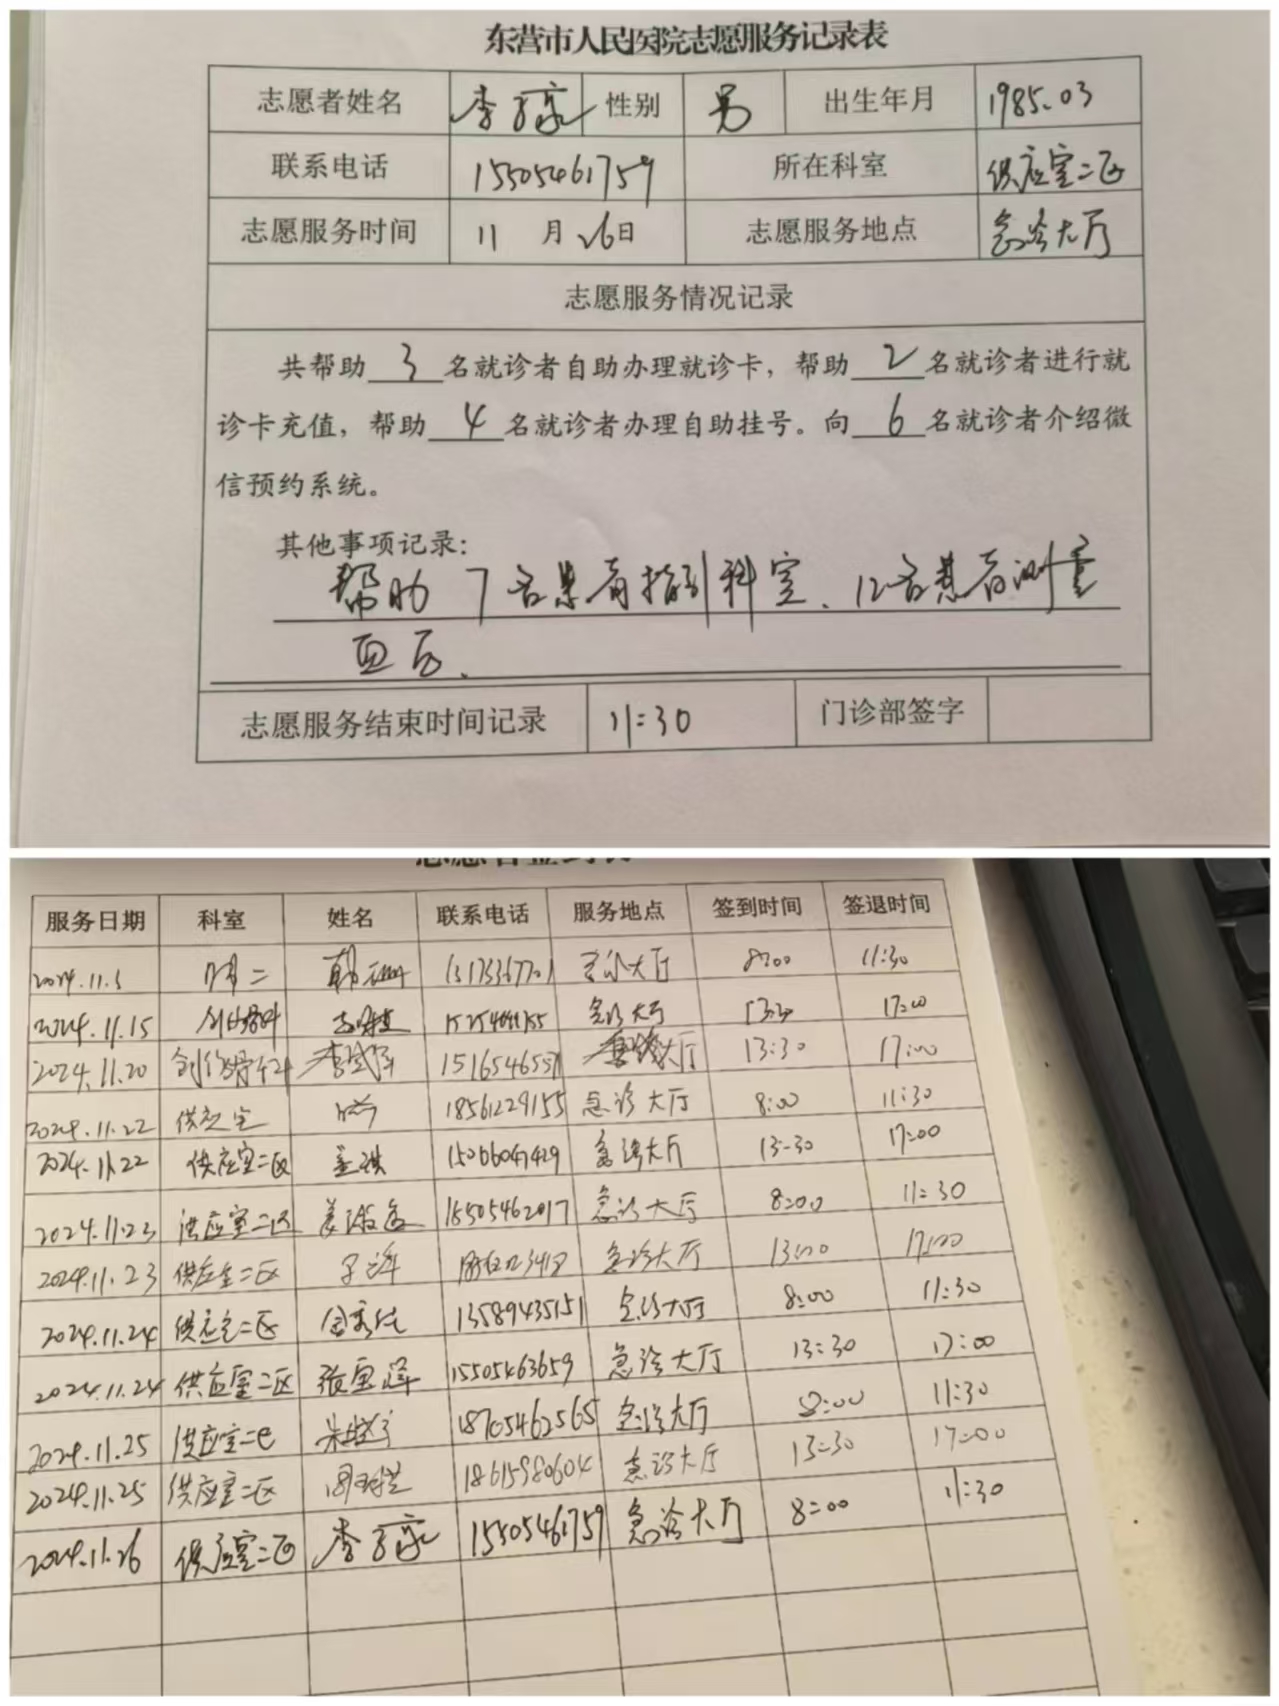 东营市人民医院志愿服务记录表
志愿者姓名 李 性别 男 出生年月 1985.03
联系电话 15505461759 所在科室 供应室二区
志愿服务时间 11 月 26 日 志愿服务地点 急诊大厅
志愿服务情况记录
共帮助 3 名就诊者自助办理就诊卡，帮助 2 名就诊者进行就
诊卡充值，帮助 4 名就诊者办理自助挂号。向 6 名就诊者介绍微
信预约系统。
其他事项记录：
帮助 7名患者指引科室、12名患者测量
血压.
志愿服务结束时间记录 11:30 门诊部签字
志愿者签到表
服务日期 科室 姓名 联系电话 服务地点 签到时间 签退时间
2024.11. 大厅 8:00 11:30
2024.11.15 急诊大厅 17:00
2024.11.20 创伤骨科 李 大厅 13:30 17:00
2024.11.22 供应室 18561229155 急诊大厅 8:00 11:30
2024.11.22 供应室二区 15066047429 急诊大厅 13:30 17:00
2024.11.23 供应室二区 姜 15505462017 急诊大厅 8:00 11:30
2024.11.23 供应室二区 急诊大厅 13:00 17:00
2024.11.24 供应室二区 13589435151 急诊大厅 8:00 11:30
2024.11.24 供应室二区 张 15505463659 急诊大厅 13:30 17:00
2024.11.25 供应室二区 朱 18705462565 急诊大厅 8:00 11:30
2024.11.25 供应室二区 周 18615980604 急诊大厅 13:30 17:00
2024.11.26 供应室二区 李 15505461759 急诊大厅 8:00 11:30